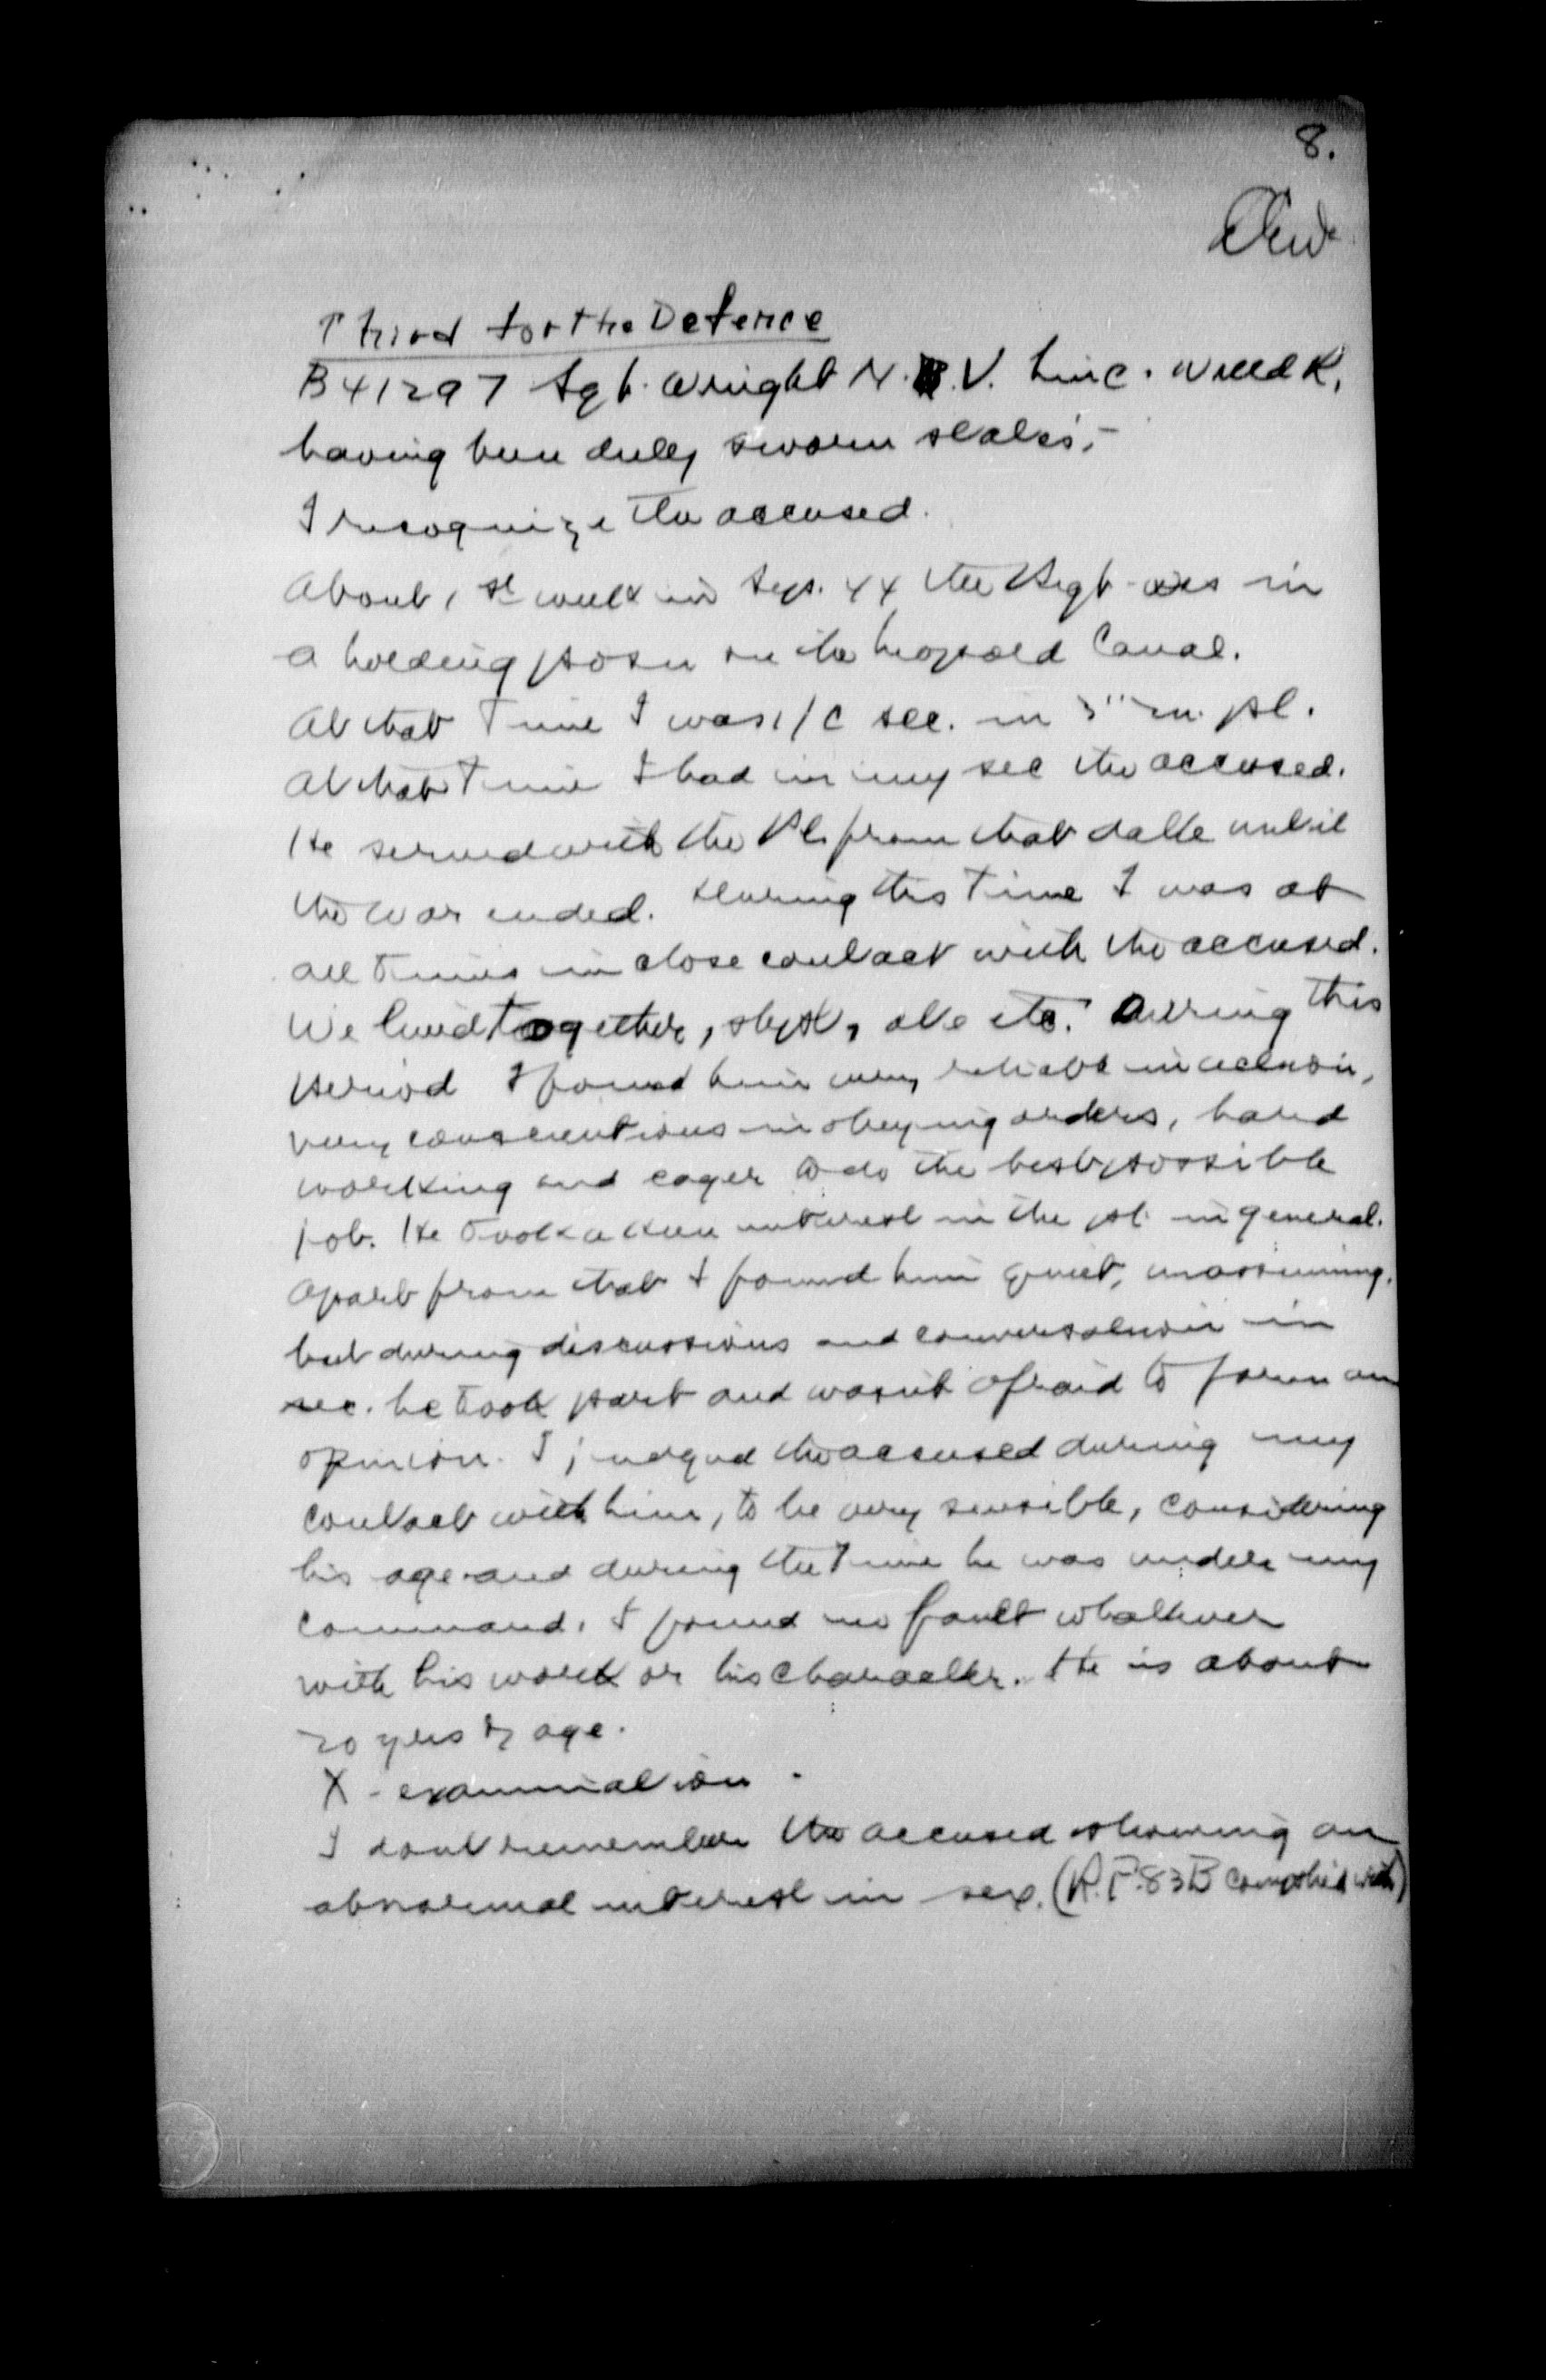 8.
Third for the Defence
B41297 Sgt. Wright N. V. Linc. & Welld R.
having been duly sworn states:-
I recognize the accused.
About 1st week in Sep. 44 the Regt was in
a holding posn on the Leopold Canal.
At that time I was i/c sec. in 3" m. pl.
At that time I had in my sec the accused.
He served with the Pl. from that date until
the war ended. During this time I was at
all times in close contact with the accused.
We lived together, slept, ate etc. During this
period I found him very reliable in action,
very conscientious in obeying orders, hard
working and eager to do the best possible
job. He took a keen interest in the pl. in general.
Apart from that I found him quiet, unassuming,
but during discussions and conversation in
sec. he took part and wasn't afraid to form an
opinion. I judged the accused during my
contact with him, to be very sensible, considering
his age and during the time he was under my
command, I found no fault whatever
with his work or his character. He is about
20 yrs of age.
X-examination.
I dont remember the accused showing an
abnormal interest in sex. (R.P. 83B complied with)